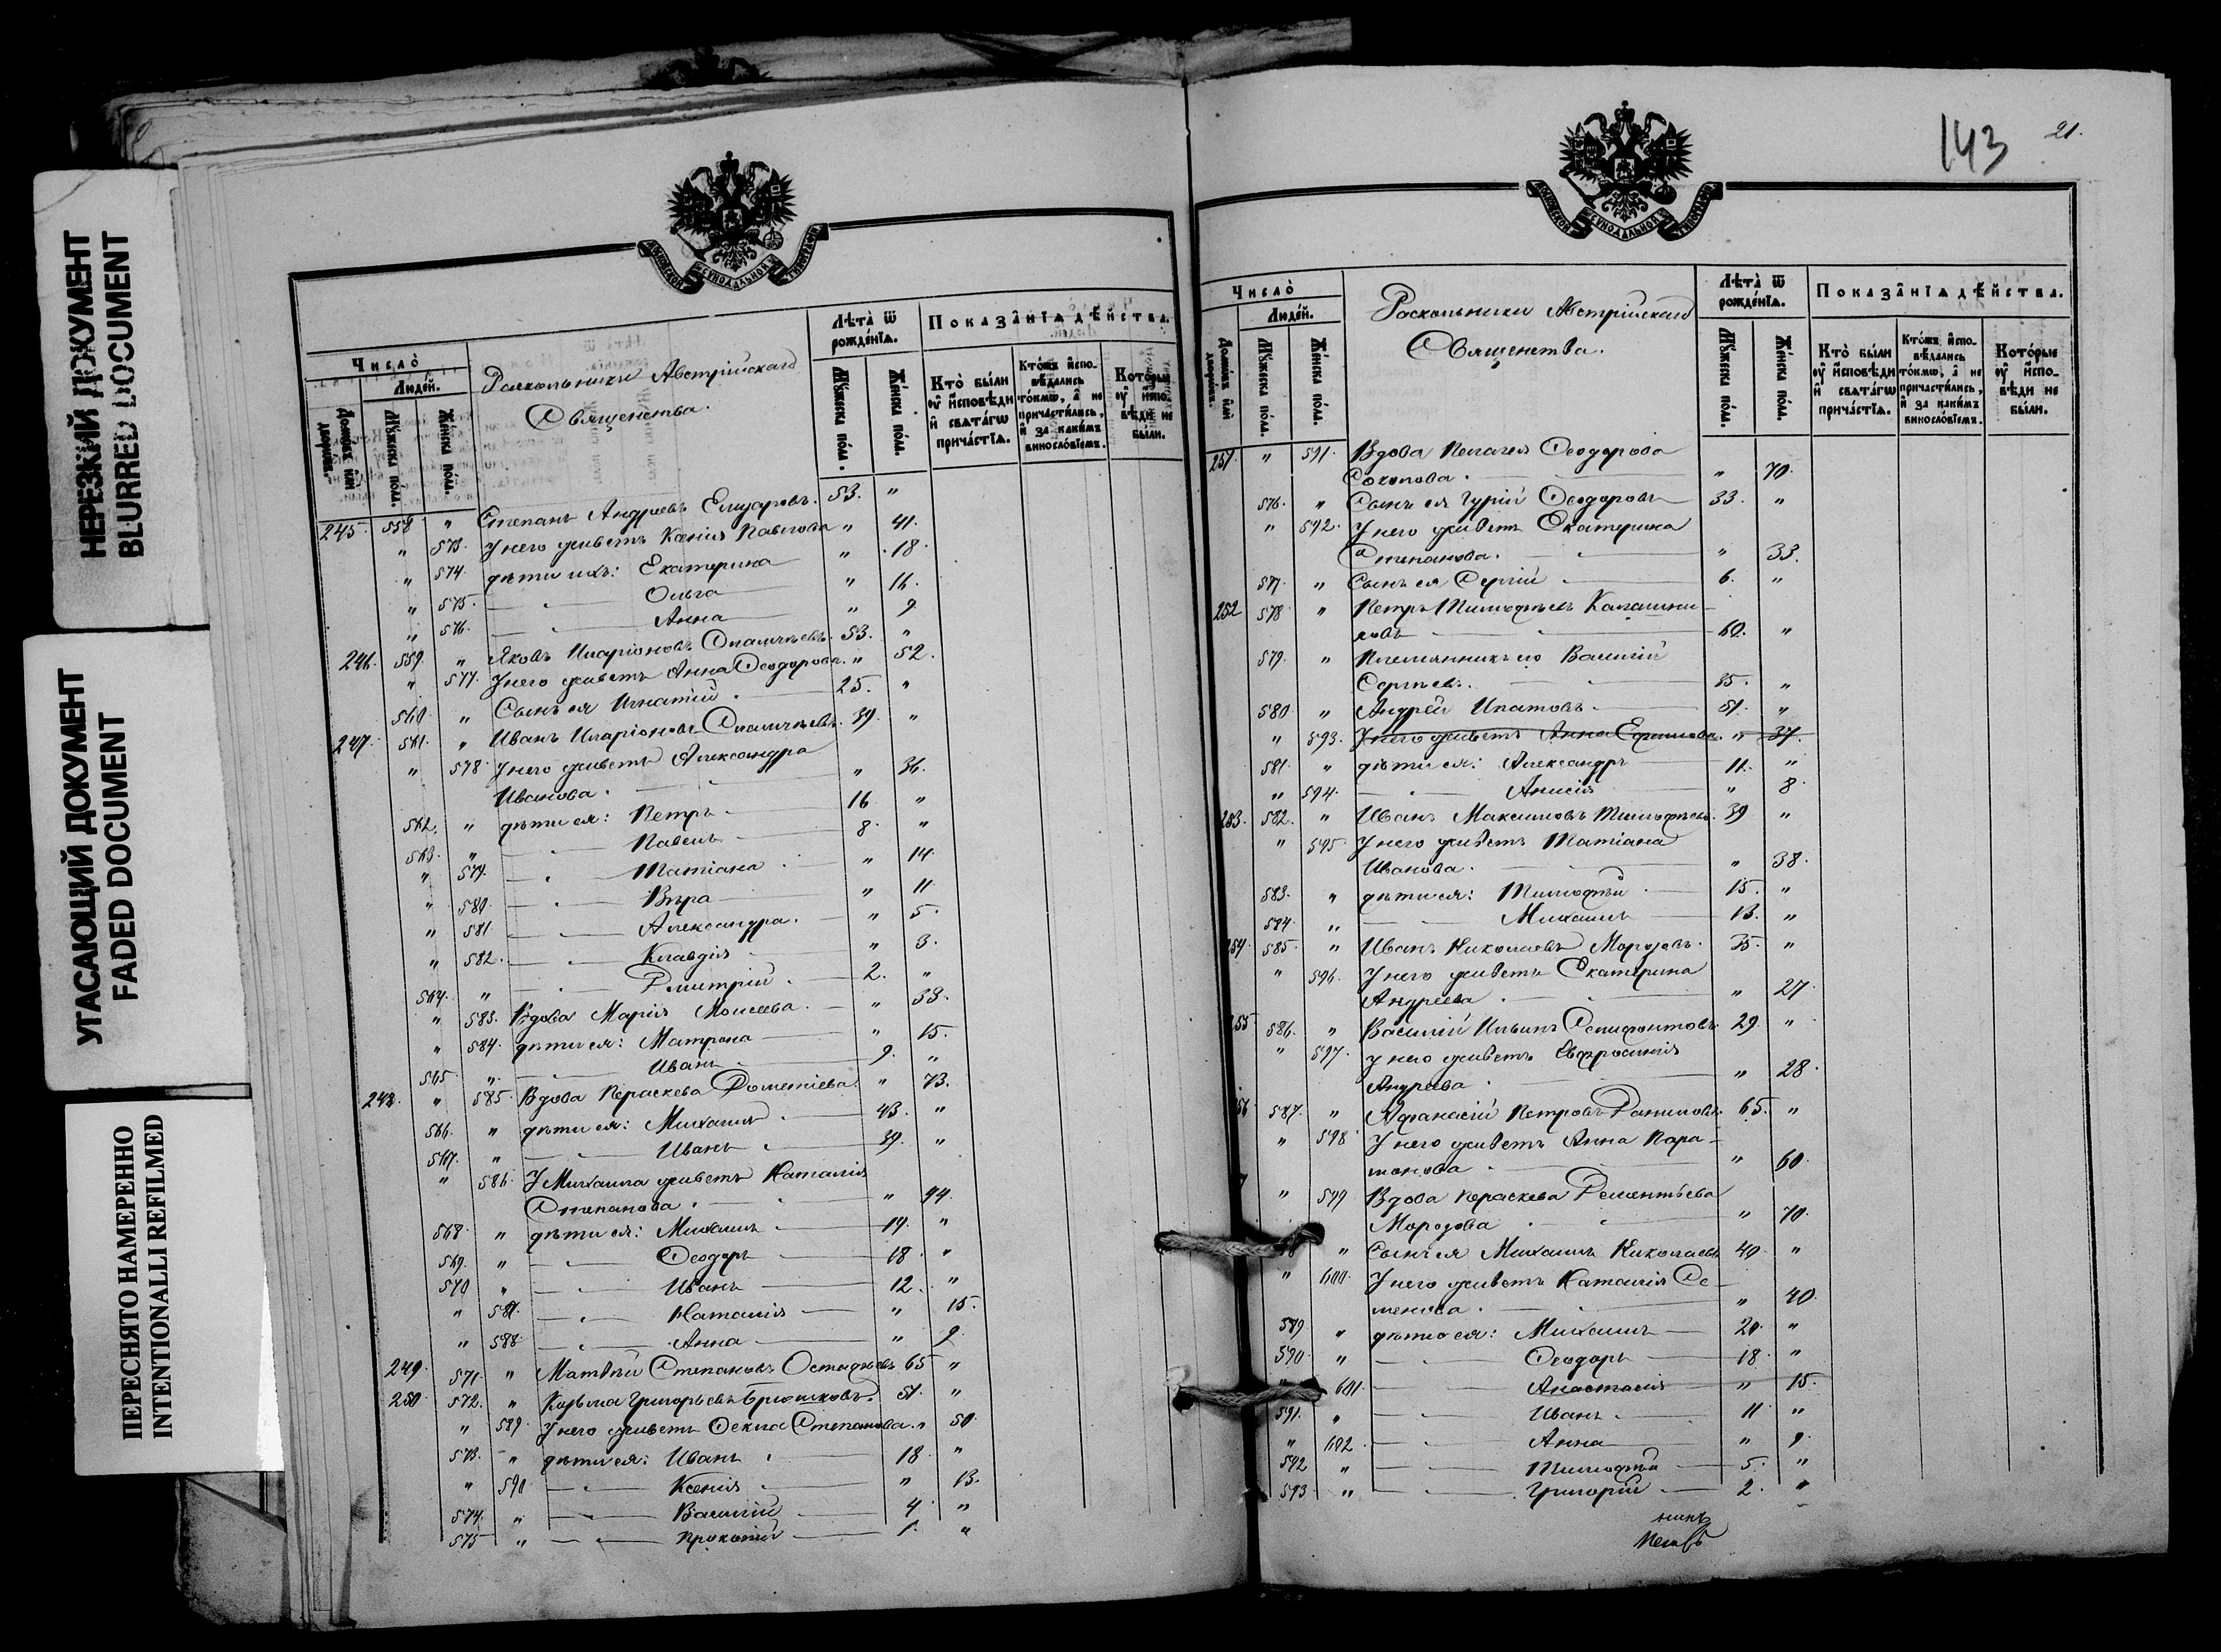 НЕРЕЗКИЙ ДОКУМЕНТ
BLURRED DOCUMENT
УГАСАЮЩИЙ ДОКУМЕНТ
FADED DOCUMENT
ПЕРЕСНЯТО НАМЕРЕННО
INTENTIONALLI REFILMED
МОСКОВСКОЙ СѴНОДАЛЬНОЙ ТИПОГРАФІИ
Число̀
Людей.
Домовъ или дворовъ.
Мꙋжеска полꙋ.
Женска полꙋ.
Раскольники Австрійскаго
Священства.
Лѣта̀ ѿ рожде́нїѧ.
Мꙋжеска полꙋ.
Женска полꙋ.
Показа̑нїѧ дѣйства.
Кто̀ были оу҆ и҆споведи и҆ свѧта́гѡ прича́стїѧ.
Кто́жъ и҆споведались то́кмѡ, а҆ не причасти́лись, и҆ за каки́мъ винословїемъ.
Которые оу҆ и҆споведи не были.
245. 558 " Степанъ Андреевъ 53. "
" 573. У него живетъ Ксенія Павлова " 41.
" 574. дѣти ихъ: Екатерина " 18.
" 575. — Ольга " 16.
" 576. — Анна " 9
246. 559. " Яковъ Иларіоновъ 53. "
" 577. У него живетъ Анна Ѳеодорова. " 52.
560. " Сынъ ея Игнатій 25. "
247. 561. " Иванъ Иларіоновъ 39. "
" 578. У него живетъ Александра
Иванова. " 36.
562. " дѣти ея: Петръ 16 "
563. " — Павелъ 8. "
" 579. — Татіана " 14.
" 580. — Вѣра " 11.
" 581. — Александра. " 5.
" 582. — Клавдія " 3.
564. " — Димитрій 2. "
" 583. Вдова Марія Моисеева. " 38.
" 584. дѣти ея: Матрона " 15.
565. " — Иванъ 9. "
248. " 585. Вдова Параскева Дометіева " 73.
566. " дѣти ея: Михаилъ 43. "
567. " — Иванъ 39. "
" 586. У Михаила живетъ Наталія
Степанова. " 44.
568. " дѣти ея: Михаилъ 19. "
569. " — Ѳеодоръ 18. "
570 " — Иванъ 12. "
" 587. — Наталія " 15.
" 588. — Анна " 9.
249. 571. " Матвѣй Степановъ 65 "
250. 572. " Козьма Григорьевъ Брюшковъ. 51. "
" 589. У него живетъ Ѳекла Степанова. " 50.
573. " дѣти ея: Иванъ 18. "
" 590 — Ксенія " 13.
574. " — Василій 4. "
575 " — Прокопій 1. "
143 21.
МОСКОВСКОЙ СѴНОДАЛЬНОЙ ТИПОГРАФІИ
Число̀
Людей.
Домовъ или дворовъ.
Мꙋжеска полꙋ.
Женска полꙋ.
Раскольники Австрійскаго
Священства.
Лѣта̀ ѿ рожде́нїѧ.
Мꙋжеска полꙋ.
Женска полꙋ.
Показа̑нїѧ дѣйства.
Кто̀ были оу҆ и҆споведи и҆ свѧта́гѡ прича́стїѧ.
Кто́жъ и҆споведались то́кмѡ, а҆ не причасти́лись, и҆ за каки́мъ винословїемъ.
Которые оу҆ и҆споведи не были.
251. " 591. Вдова Пелагея Ѳеодорова
Соколова. " 70.
576. " Сынъ ея Гурій Ѳеодоровъ 33. "
" 592. У него живетъ Екатерина
Степанова. " 33.
577. " Сынъ ея Сергій 6. "
252 578. " Петръ Тимоѳеевъ Калашни-
ковъ 60. "
579. " Племянникъ его Василій
Сергѣевъ. 35. "
580. " Андрей Ипатовъ 51. "
" 593. У него живетъ Анна Ефимова. " 37.
581. " дѣти ея: Александръ 11. "
" 594. — Анисія " 8.
253. 582. " Иванъ Максимовъ Тимоѳеевъ. 39 "
" 595 У него живетъ Татіана
Иванова. " 38.
583. " дѣти ея: Тимоѳей 15. "
584. " — Михаилъ 13. "
254. 585. " Иванъ Николаевъ Морозовъ. 35. "
" 596. У него живетъ Екатерина
Андреева " 27
255 586. " Василій Ильинъ 29. "
" 597. У него живетъ Евфросинія
Андреева " 28.
56 587. " Аѳанасій Петровъ Даниловъ. 65. "
" 598 У него живетъ Анна Пара-
монова " 60.
7 " 599 Вдова Параскева Дементьева
Морозова " 70.
" Сынъ ея Михаилъ Николаевъ 40. "
" 600. У него живетъ Наталія Се-
менова. " 40.
589. " дѣти ея: Михаилъ 20. "
590. " — Ѳеодоръ 18. "
" 601. — Анастасія " 15.
591. " — Иванъ 11. "
" 602. — Анна " 9.
592 " — Тимоѳей 5. "
593 " — Григорій 2. "